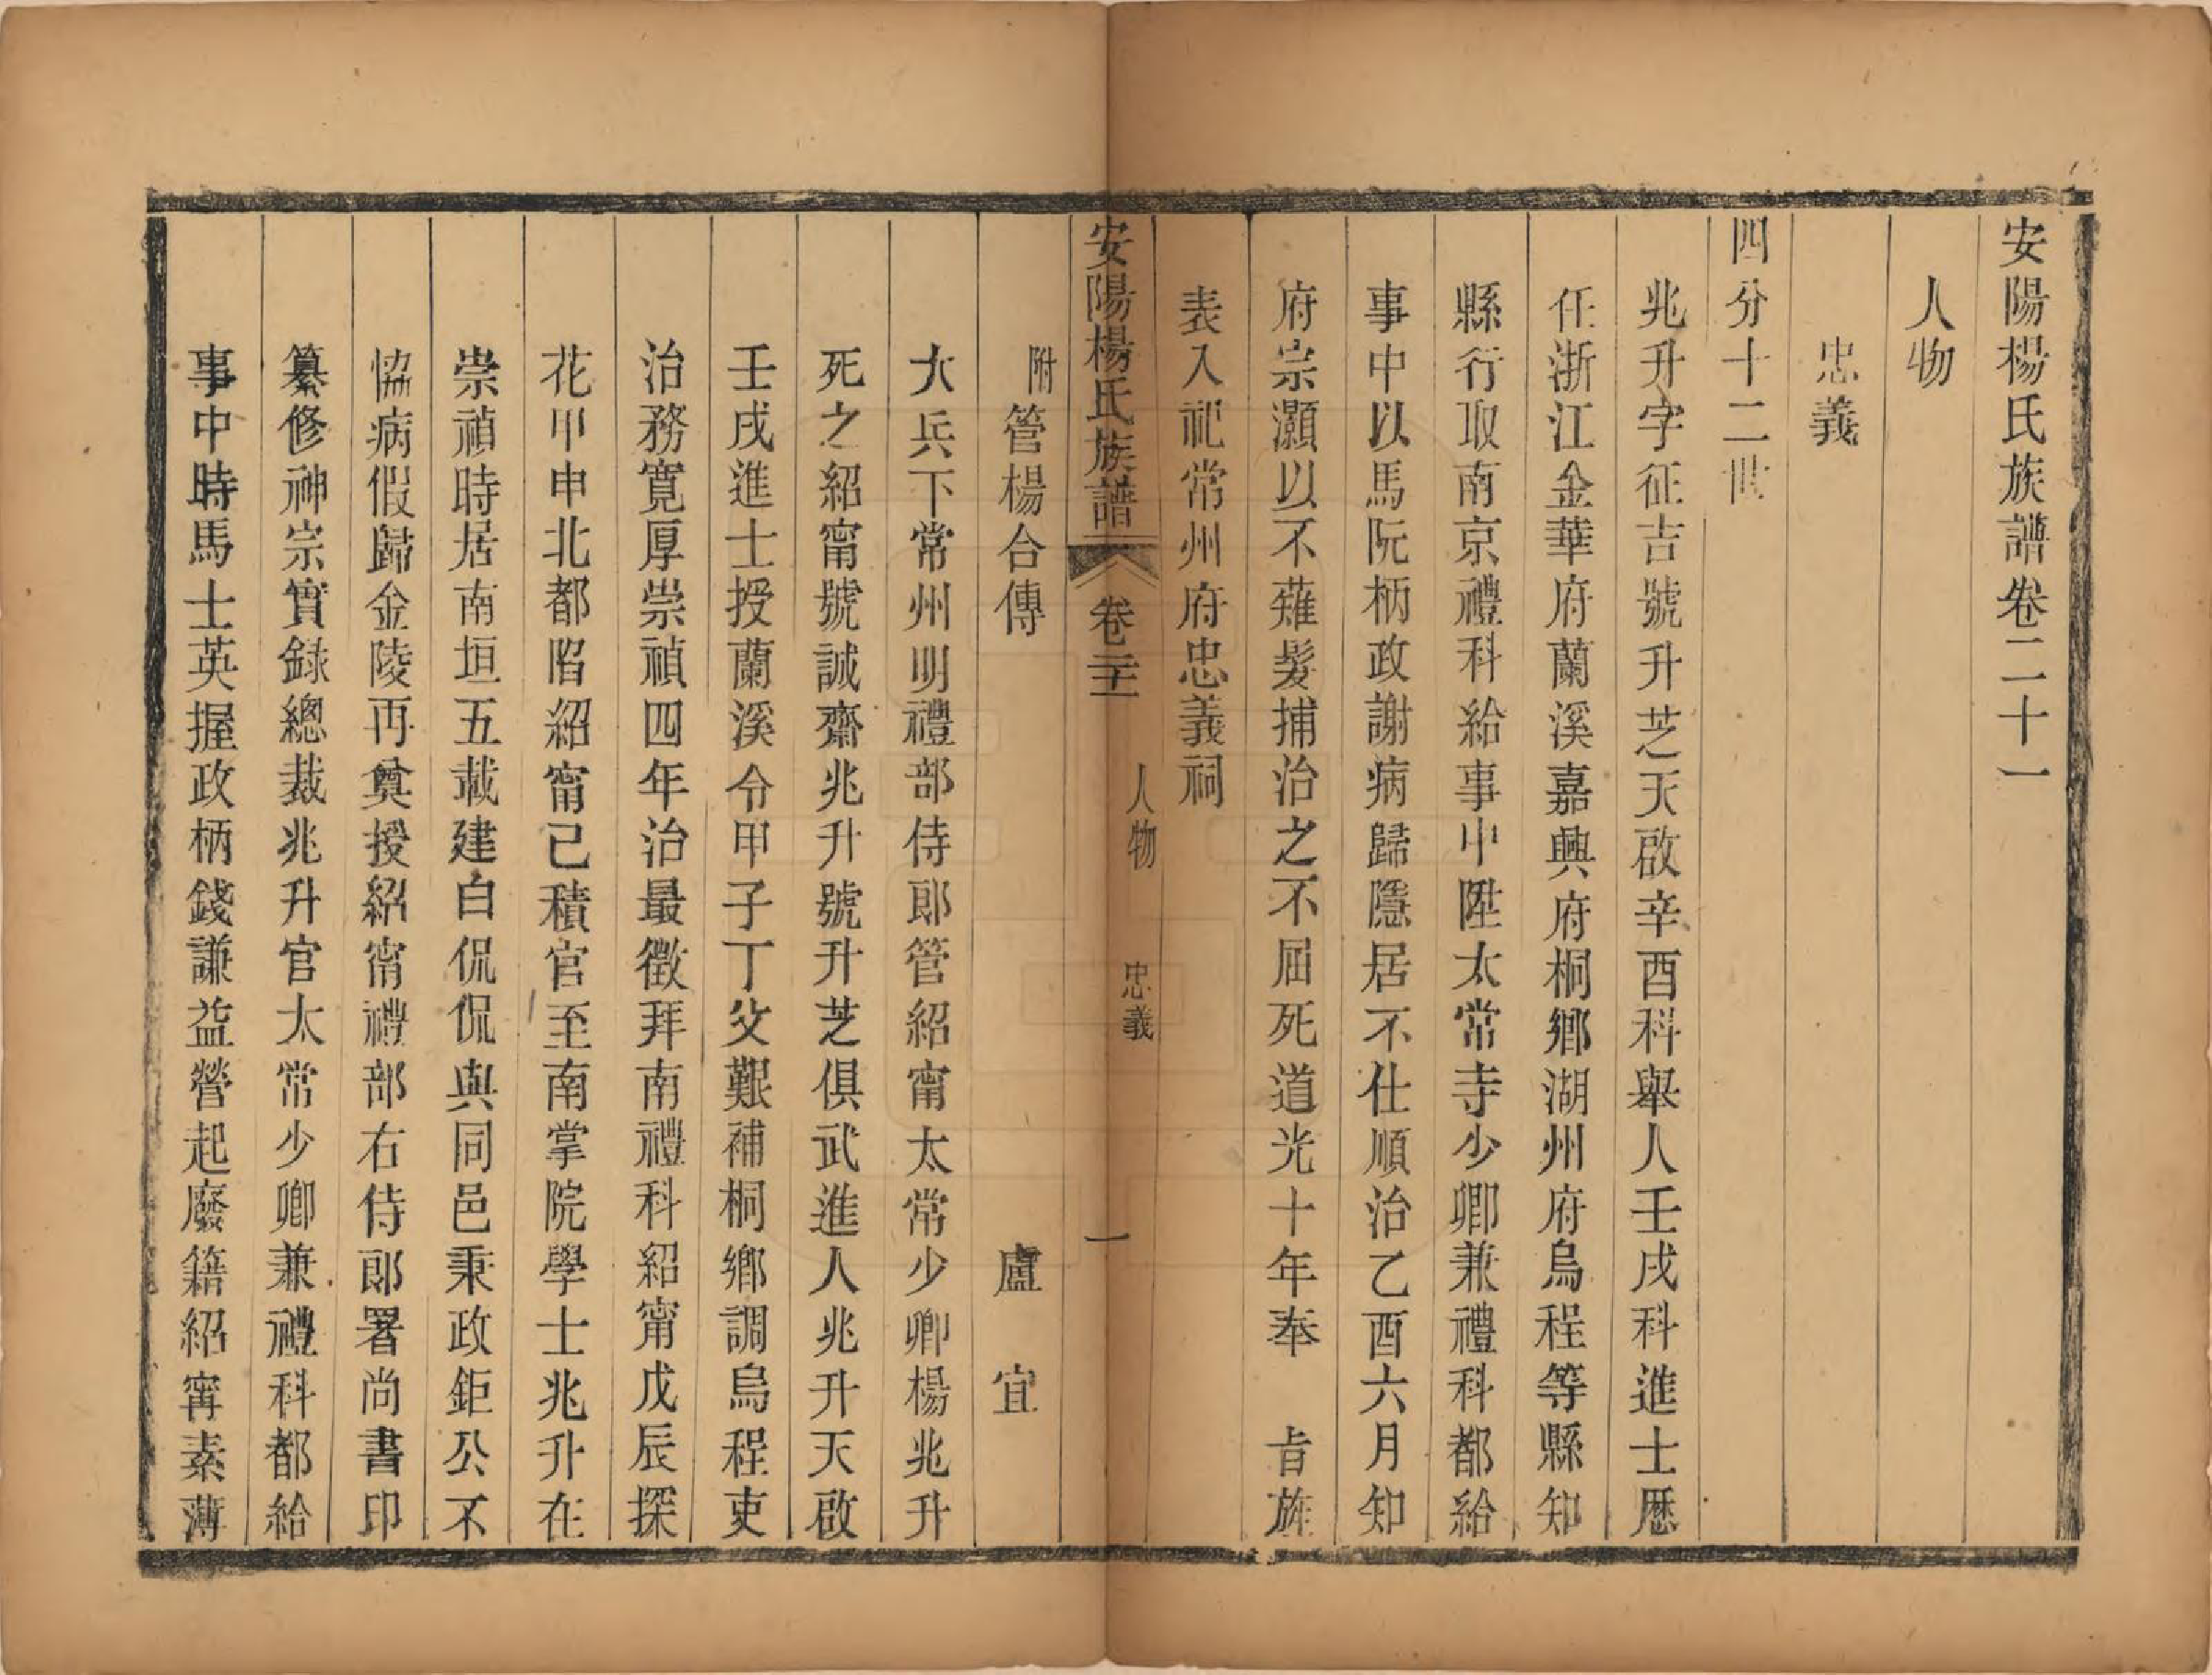 安陽楊氏族譜卷二十一
人物
忠義
四分十二世
兆升字征吉號升芝天啟辛酉科舉人壬戌科進士歷
任浙江金華府蘭溪嘉興府桐鄉湖州府烏程等縣知
縣行取南京禮科給事中陞太常寺少卿兼禮科都給
事中以馬阮柄政謝病歸隱居不仕順治乙酉六月知
府宗灝以不薙髮捕治之不屈死道光十年奉 旨旌
表入祀常州府忠義祠
安陽楊氏族譜 卷二十一 人物 忠義 一
附管楊合傳 盧宜
大兵下常州明禮部侍郎管紹甯太常少卿楊兆升
死之紹甯號誠齋兆升號升芝俱武進人兆升天啟
壬戌進士授蘭溪令甲子丁父艱補桐鄉調烏程吏
治務寬厚崇禎四年治最徵拜南禮科紹甯戊辰探
花甲申北都陷紹甯已積官至南掌院學士兆升在
崇禎時居南垣五載建白侃侃與同邑秉政鉅公不
恊病假歸金陵再奠授紹甯禮部右侍郎署尚書印
纂修神宗實錄總裁兆升官太常少卿兼禮科都給
事中時馬士英握政柄錢謙益營起廢籍紹甯素薄